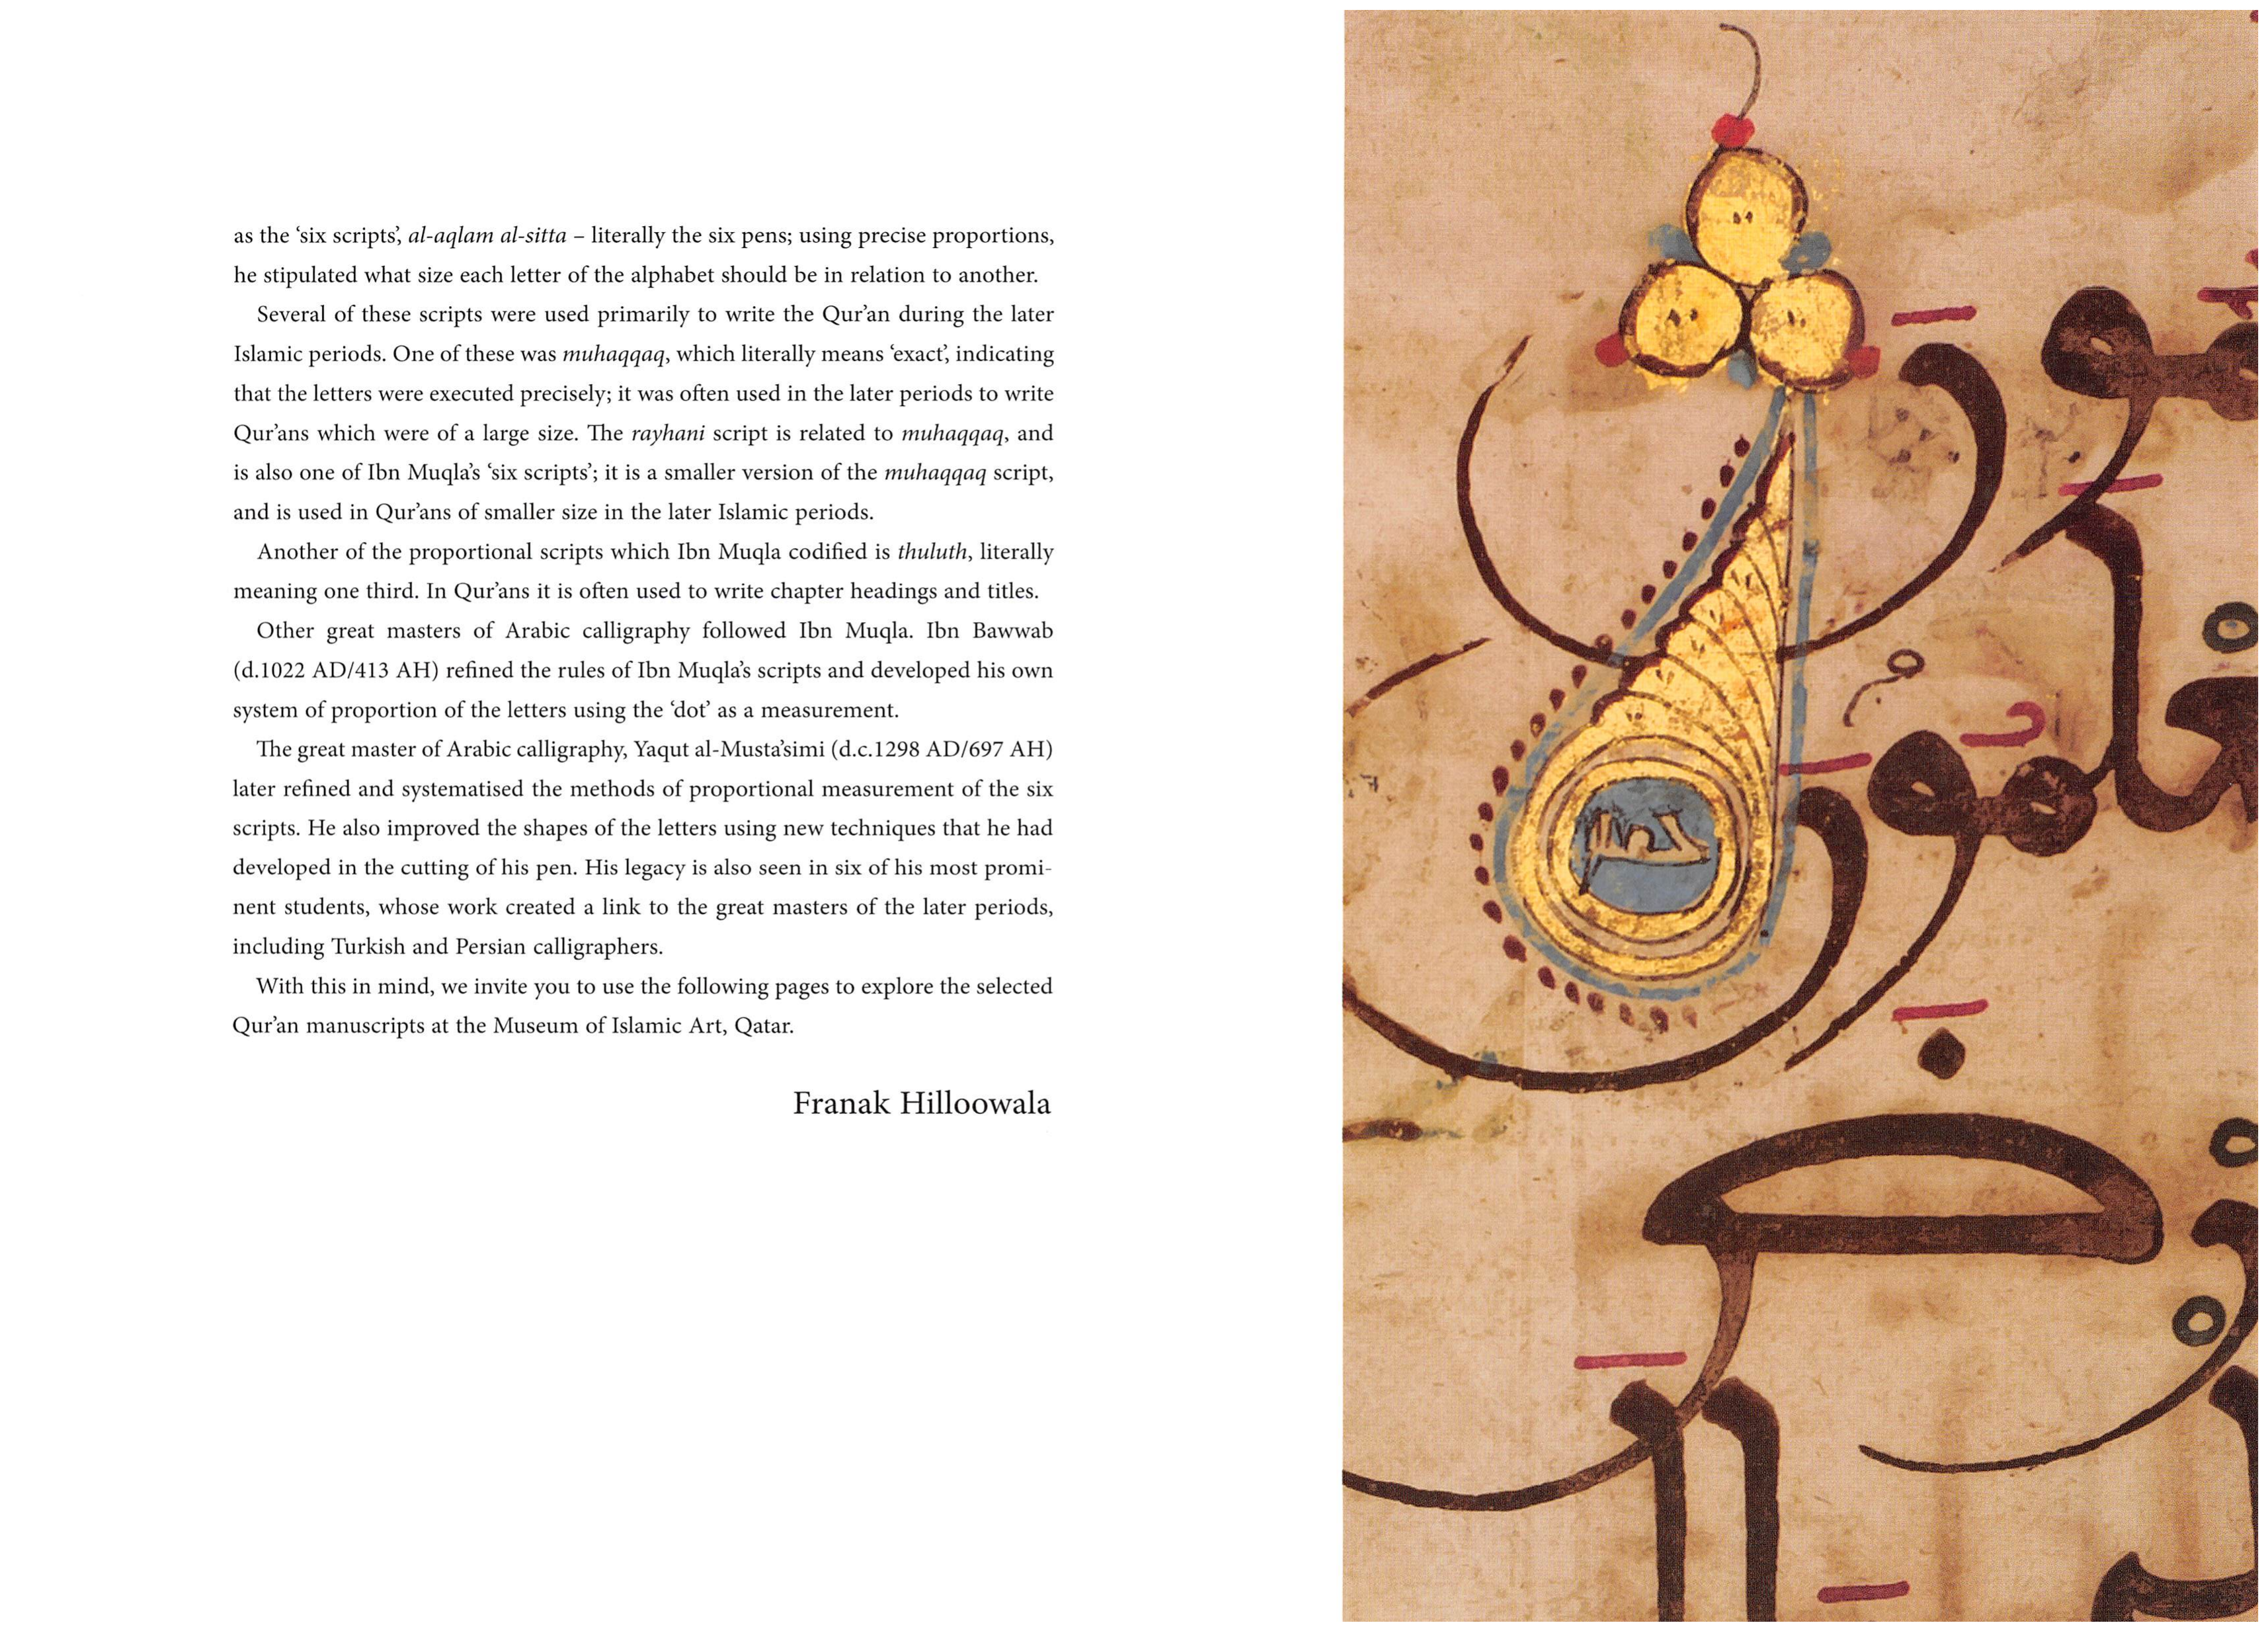 as the ‘six scripts’, al-aqlam al-sitta – literally the six pens; using precise proportions,
he stipulated what size each letter of the alphabet should be in relation to another.
Several of these scripts were used primarily to write the Qur’an during the later
Islamic periods. One of these was muhaqqaq, which literally means ‘exact’, indicating
that the letters were executed precisely; it was often used in the later periods to write
Qur’ans which were of a large size. The rayhani script is related to muhaqqaq, and
is also one of Ibn Muqla’s ‘six scripts’; it is a smaller version of the muhaqqaq script,
and is used in Qur’ans of smaller size in the later Islamic periods.
Another of the proportional scripts which Ibn Muqla codified is thuluth, literally
meaning one third. In Qur’ans it is often used to write chapter headings and titles.
Other great masters of Arabic calligraphy followed Ibn Muqla. Ibn Bawwab
(d.1022 AD/413 AH) refined the rules of Ibn Muqla’s scripts and developed his own
system of proportion of the letters using the ‘dot’ as a measurement.
The great master of Arabic calligraphy, Yaqut al-Musta’simi (d.c.1298 AD/697 AH)
later refined and systematised the methods of proportional measurement of the six
scripts. He also improved the shapes of the letters using new techniques that he had
developed in the cutting of his pen. His legacy is also seen in six of his most promi-
nent students, whose work created a link to the great masters of the later periods,
including Turkish and Persian calligraphers.
With this in mind, we invite you to use the following pages to explore the selected
Qur’an manuscripts at the Museum of Islamic Art, Qatar.
Franak Hilloowala